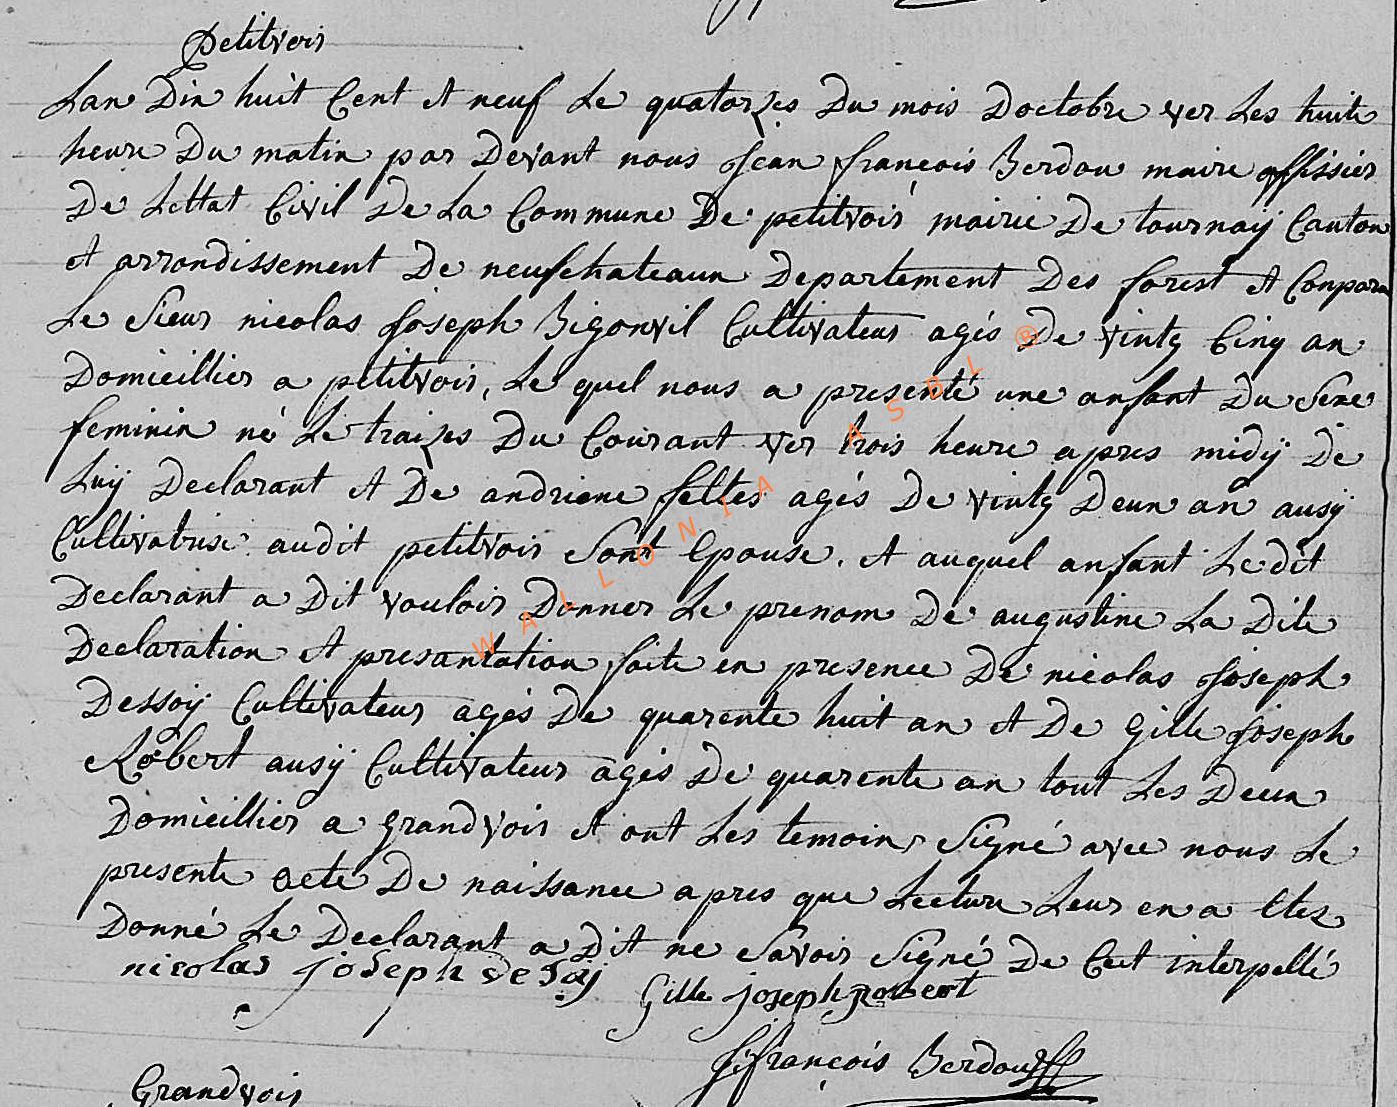 petitvoir
Lan Dix huit Cent et neuf Le quatorzes Du mois Doctobre ver Les huite
heure Du matin par Devant nous Jean francois Berdou maire offissier
De Lettat Civil De La Commune De petitvoir mairie De tournay Canton
et arrondissement De neufchateaux Departement Des forest et Conparu
Le Sieur nicolas Joseph Bigonvil Cultivateur agés De vintg Cinq an
Domicillier a petitvoir, Le quel nous a presenté une anfant Du Sexe
feminin né Le traizes Du Courant ver trois heure apres midÿ De
Luÿ Declarant et De andriene feltes agés De vintg Deux an ausÿ
Cultivatrise audit petitvoir Sont Epouse. et auquel anfant Le dit
Declarant a Dit vouloir Donner Le prenom De augustine La Dite
Declaration et presantation faite en presence De nicolas Joseph
Dessoÿ Cultivateur agés De quarente huit an et De Gille Joseph
Robert ausÿ Cultivateur agés De quarente an tout Les Deux
Domicillier a grandvoir et ont Les temoins Signé avec nous Le
presente acte De naissance apres que Lecture Leur en a Etez
Donné Le Declarant a Dit ne Savoir Signé De Cect interpellé
nicolas joseph desoÿ
Gille joseph robert
J: françois Berdou
Grandvoir
WALLONIA ASBL ®